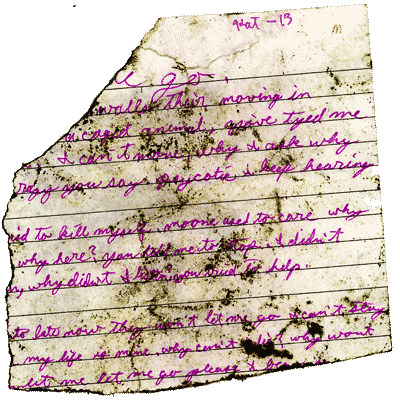 go.
walls their moving in
a caged animal, youve tyed me
I can't move, why I ask why
crazy you say, psycotic I keep hearing
to kill myself, moone used to care why
why here? you told me to stop. I didn't
why didn't I listen you tried to help.
to late now they won't let me go I can't stay
my life is mine, why can't I die? why wont
let me let me go please I beg